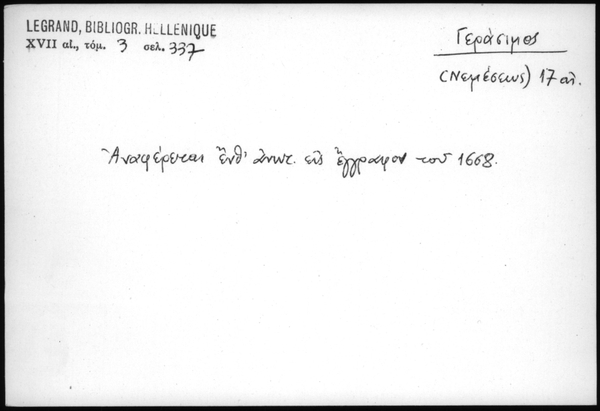 LEGRAND, BIBLIOGR. HELLENIQUE
XVII αἰ., τόμ. 3 σελ. 337
Γεράσιμος
(Νεμέσεως) 17 αἰ.
Ἀναφέρεται ἔνθ' ἀνωτ. εἰς ἔγγραφον τοῦ 1668.